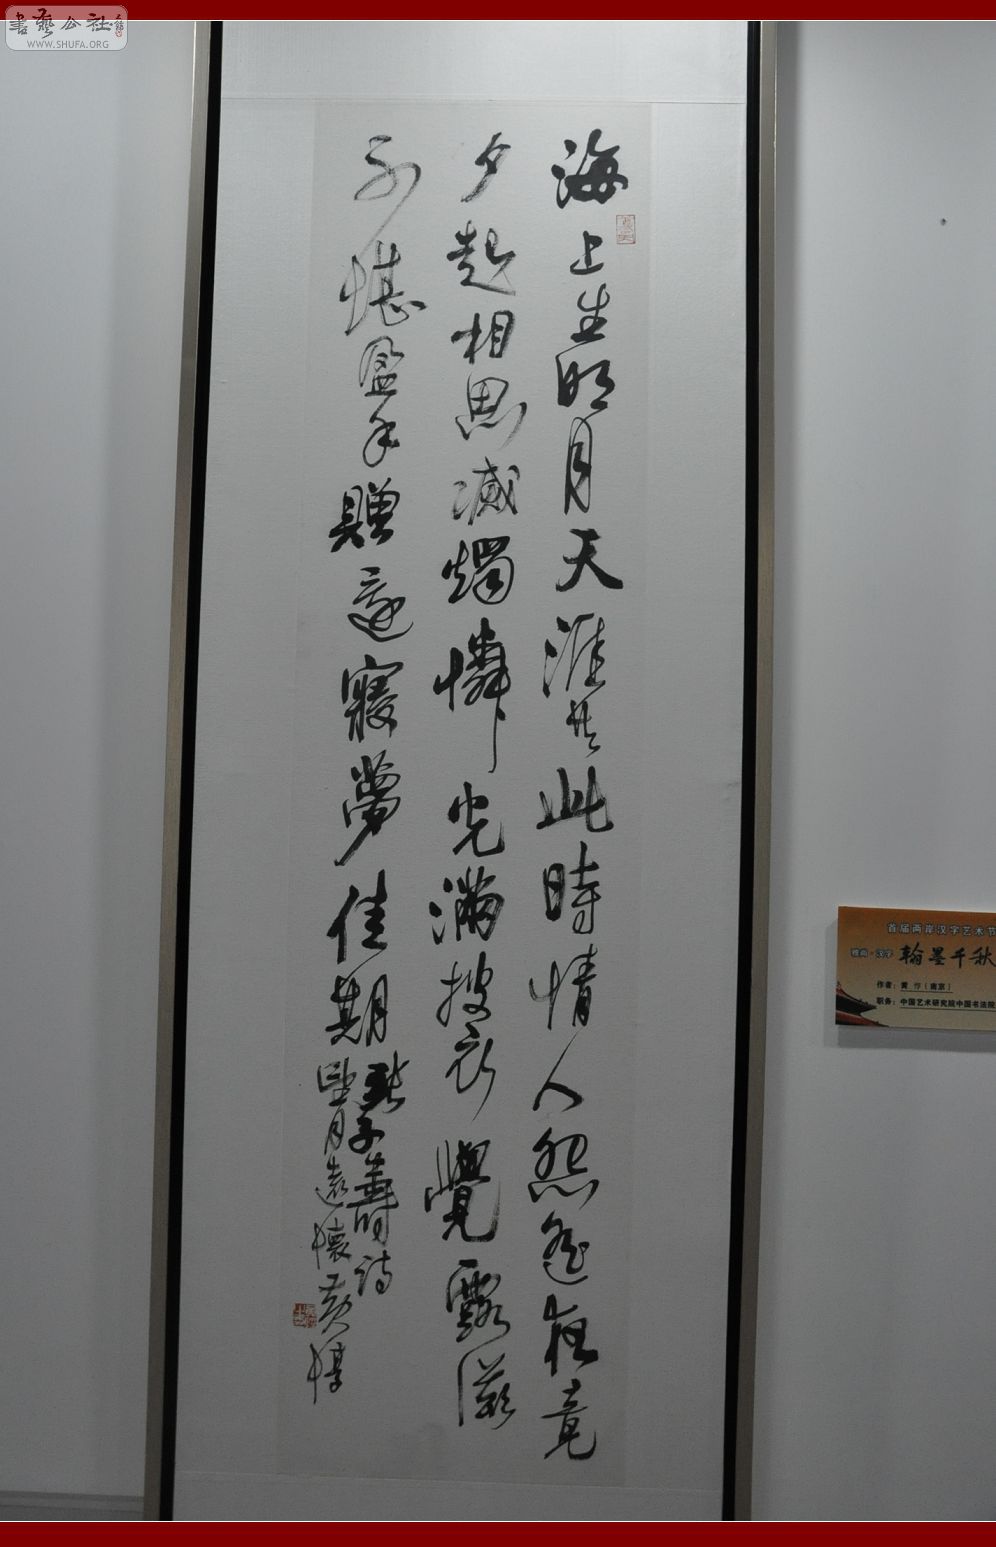 書藝公社
WWW.SHUFA.ORG
海上生明月天涯共此時情人怨遙夜竟
夕起相思滅燭憐光滿披衣覺露滋
不堪盈手贈還寢夢佳期
張子壽詩
望月遠懷黃惇
首届两岸汉字艺术节
汉字 翰墨千秋
作者：黄惇（南京）
职务：中国艺术研究院中国书法院